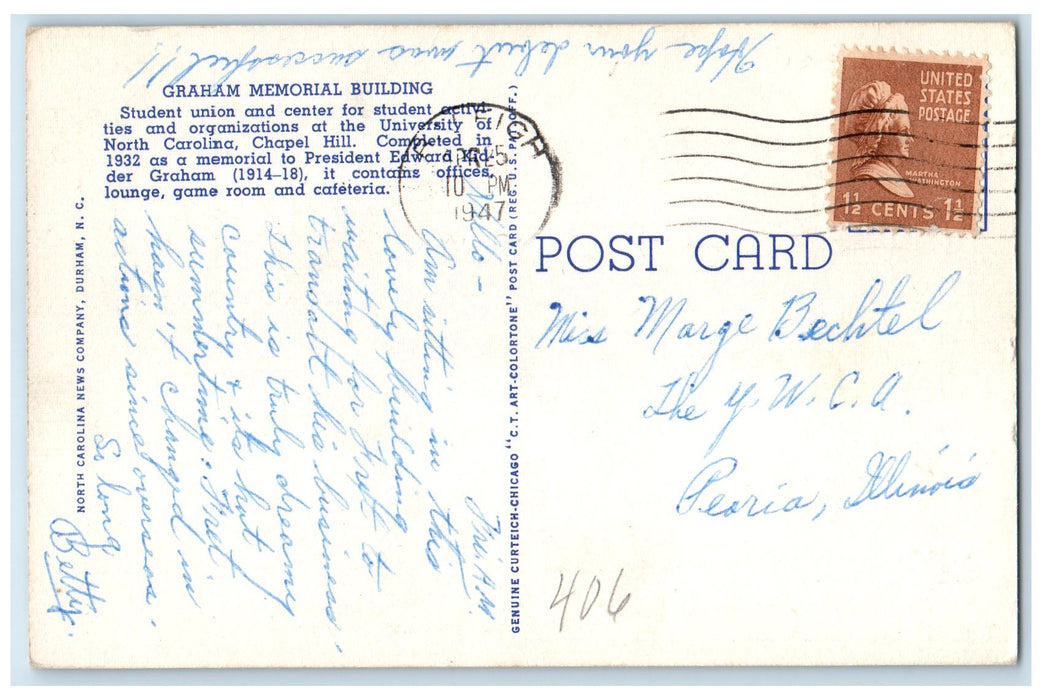 Hope your debut was successful!!
GRAHAM MEMORIAL BUILDING
Student union and center for student activi-
ties and organizations at the University of
North Carolina, Chapel Hill. Completed in
1932 as a memorial to President Edward Kid-
der Graham (1914-18), it contains offices,
lounge, game room and cafeteria.
NORTH CAROLINA NEWS COMPANY, DURHAM, N. C.
GENUINE CURTEICH-CHICAGO "C.T. ART-COLORTONE" POST CARD (REG. U.S. PAT. OFF.)
Thu. A.M.
Hello -
Am sitting in this
lovely building
waiting for Fret to
transact his business.
This is truly dreamy
country & its hot
summertime. Fret
hasn't changed in
actions since overseas.
So long
Betty.
RALEIGH
APR 5
10 PM
1947
UNITED
STATES
POSTAGE
MARTHA
WASHINGTON
1½ CENTS 1½
POST CARD
Miss Marge Bechtel
The Y.W.C.A.
Peoria, Illinois
406